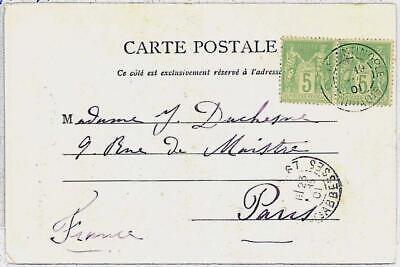 CARTE POSTALE
Ce côté est exclusivement réservé à l'adresse
5 5
M adame J. Duchesne
9 Rue de Maistre
Paris
France